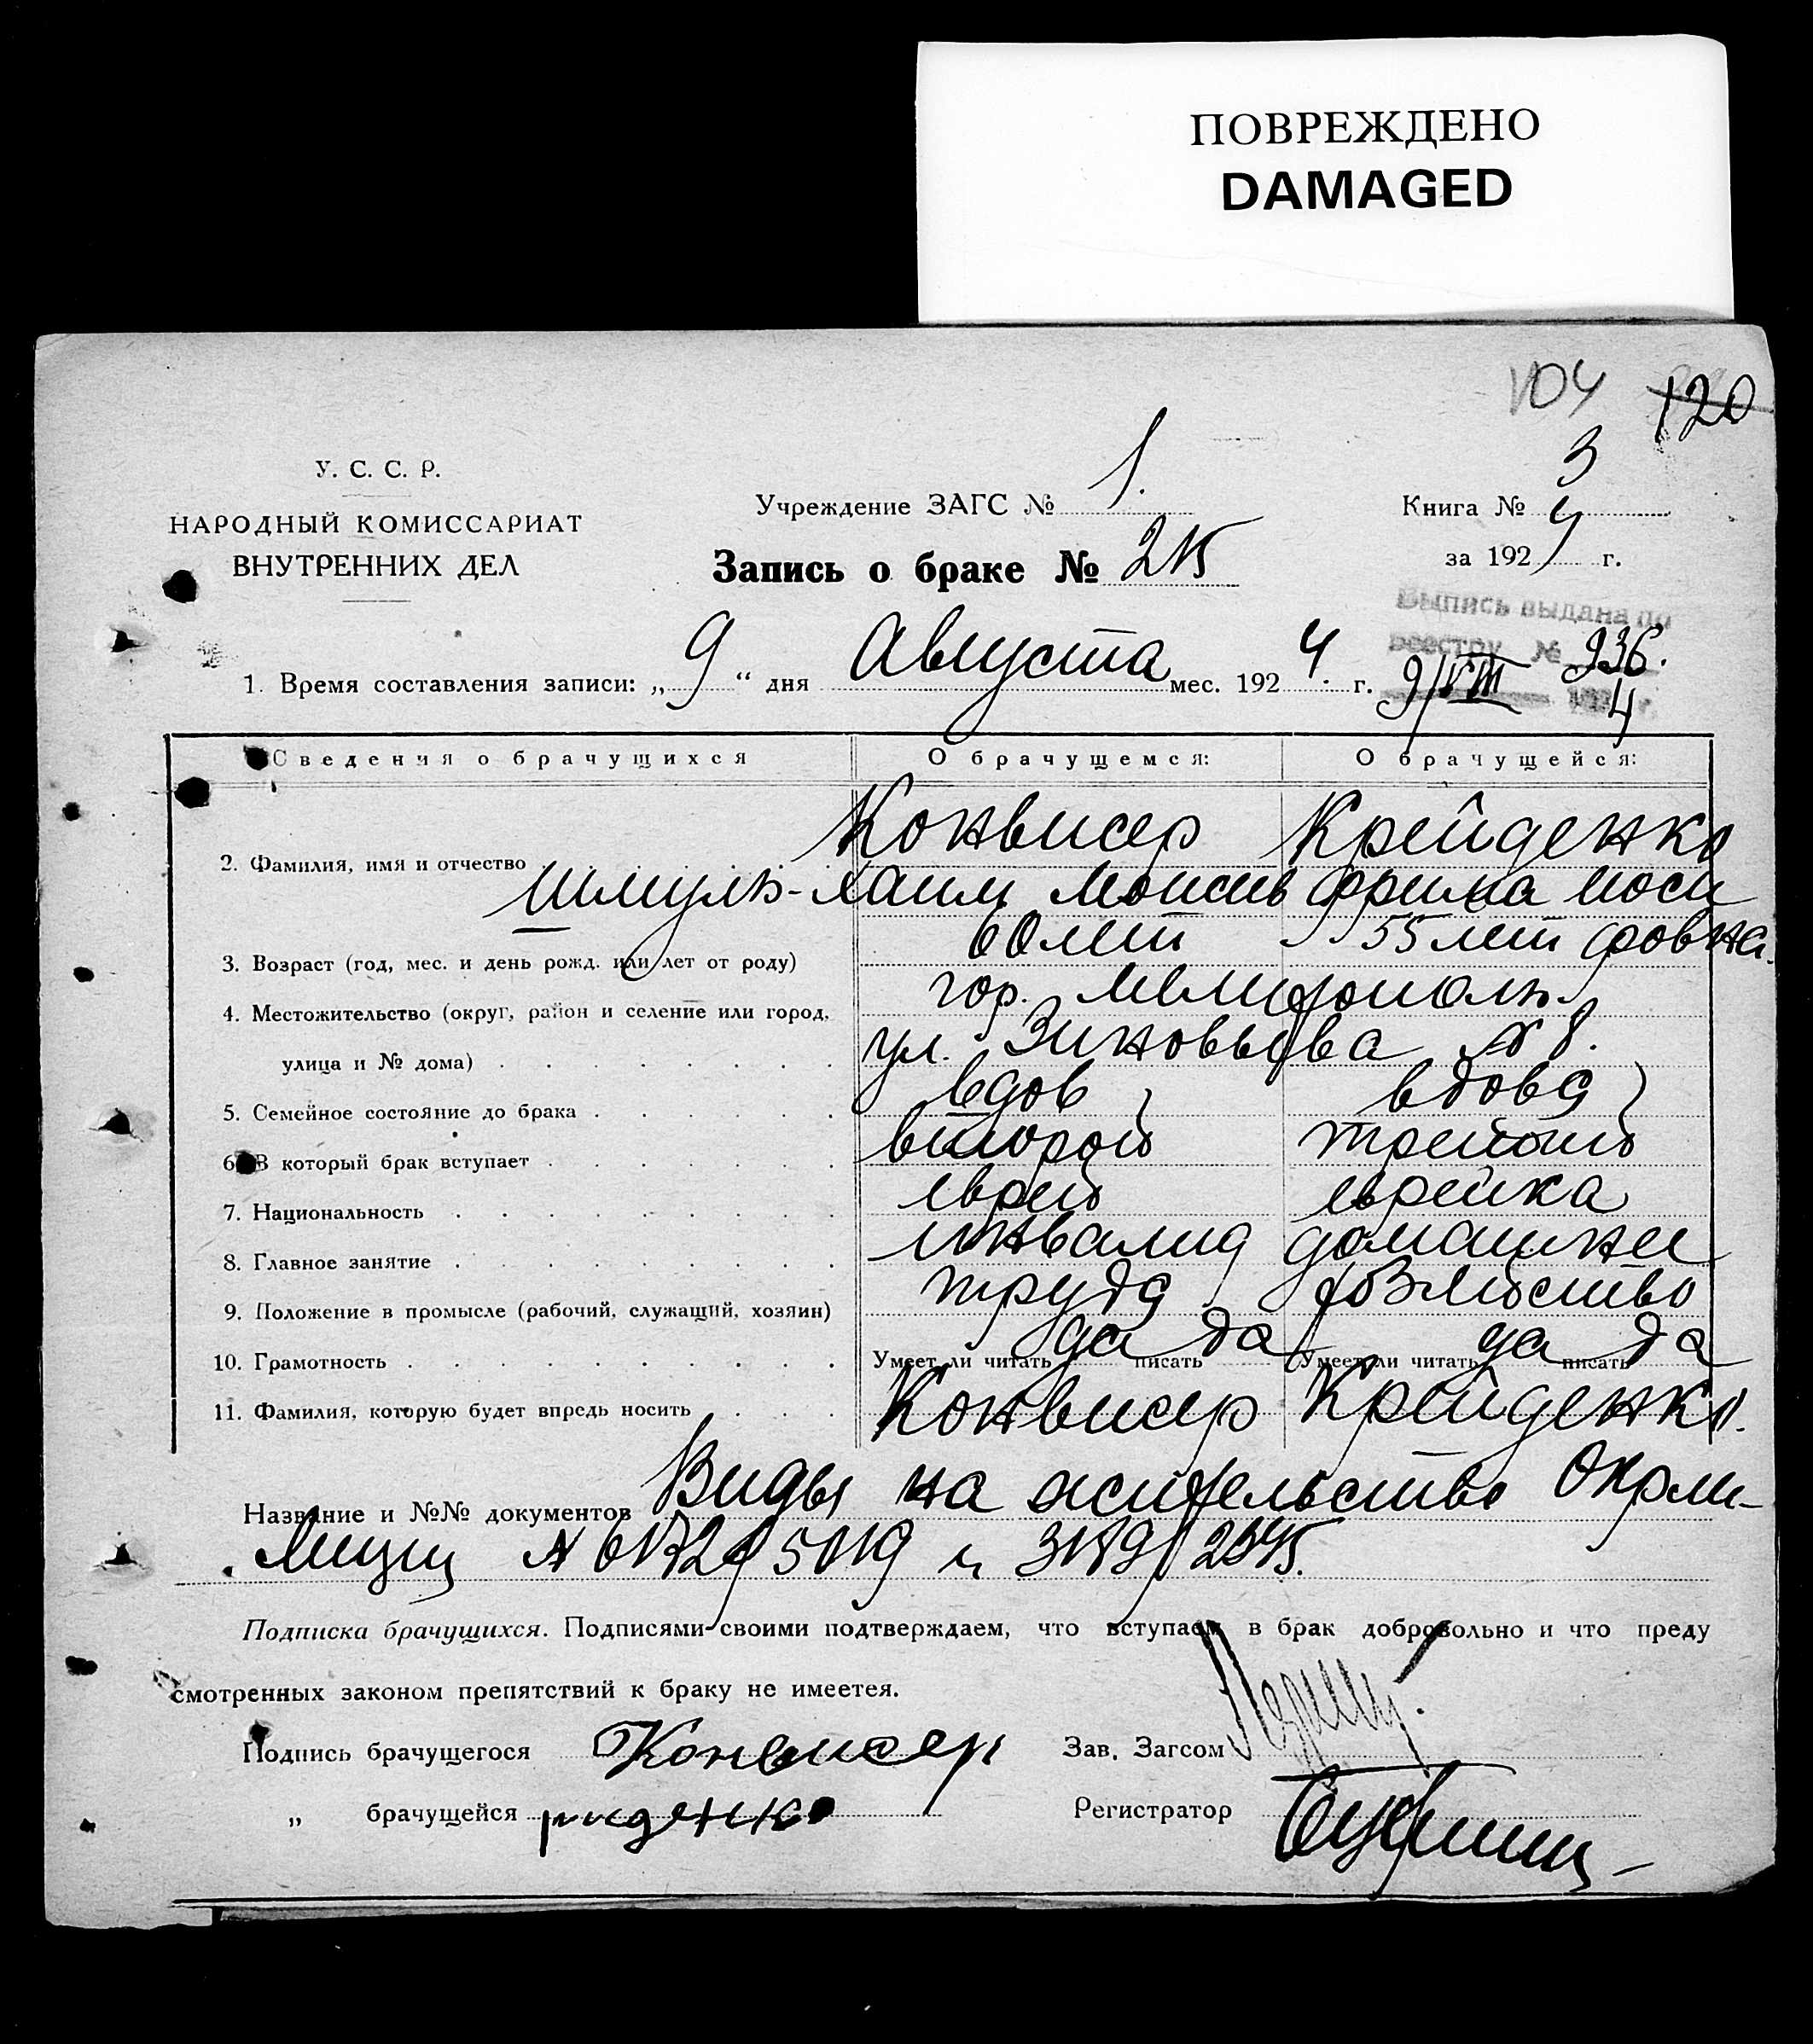 ПОВРЕЖДЕНО
DAMAGED
104 120
У. С. С. Р.
НАРОДНЫЙ КОМИССАРИАТ
ВНУТРЕННИХ ДЕЛ
Учреждение ЗАГС № 1.
Книга № 3
за 1924 г.
Запись о браке № 215
Выпись выдана по
реестру № 936.
9/VIII 4 г.
1. Время составления записи: „ 9 “ дня Августа мес. 1924. г.
Сведения о брачущихся О брачущемся: О брачущейся:
2. Фамилия, имя и отчество Конвисер Крейденко
Шмуль-Хаим Моисеев Фрима Иоси
3. Возраст (год, мес. и день рожд. или лет от роду) 60 лет 55 лет фовна.
4. Местожительство (округ, район и селение или город, гор. Мелитополь
улица и № дома) ул. Зиновьева № 8.
5. Семейное состояние до брака вдов вдова
6. В который брак вступает второй третий
7. Национальность еврей еврейка
8. Главное занятие инвалид домашнее
9. Положение в промысле (рабочий, служащий, хозяин) труда хозяйство
10. Грамотность Умеет ли читать да писать да Умеет ли читать да писать да
11. Фамилия, которую будет впредь носить Конвисер Крейденко.
Название и №№ документов Виды на жительство Окрми-
лиции № 6172/5019 и 3189/2345.
Подписка брачущихся. Подписями своими подтверждаем, что вступаем в брак добровольно и что преду
смотренных законом препятствий к браку не имеетея.
Подпись брачущегося Конвисер Зав. Загсом
„ брачущейся Регистратор